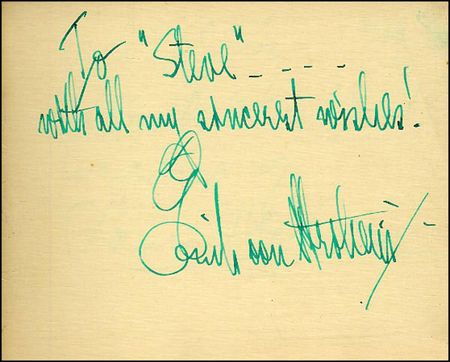 To "Steve" - - - -
with all my sincerest wishes!
Erich von Stroheim